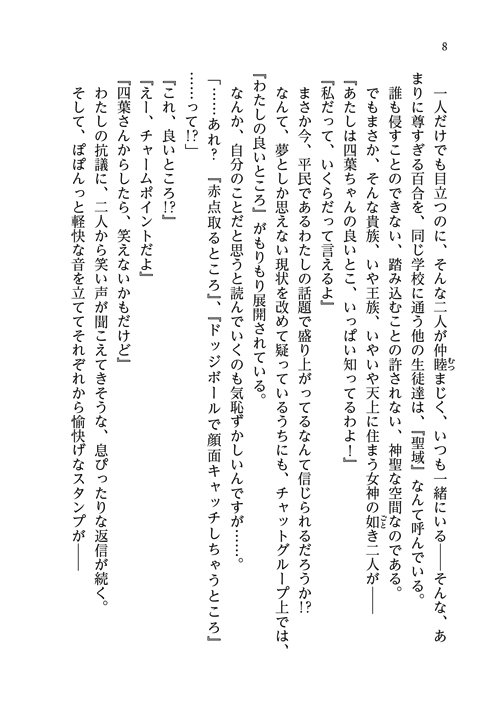 8
一人だけでも目立つのに、そんな二人が仲睦まじく、いつも一緒にいる――そんな、あ
まりに尊すぎる百合を、同じ学校に通う他の生徒達は、『聖域』なんて呼んでいる。
誰も侵すことのできない、踏み込むことの許されない、神聖な空間なのである。
でもまさか、そんな貴族、いや王族、いやいや天上に住まう女神の如き二人が――
『あたしは四葉ちゃんの良いとこ、いっぱい知ってるわよ！』
『私だって、いくらだって言えるよ』
まさか今、平民であるわたしの話題で盛り上がってるなんて信じられるだろうか!?
なんて、夢としか思えない現状を改めて疑っているうちにも、チャットグループ上では、
『わたしの良いところ』がもりもり展開されている。
なんか、自分のことだと思うと読んでいくのも気恥ずかしいんですが……。
「……あれ？　『赤点取るところ』、『ドッジボールで顔面キャッチしちゃうところ』
……って!?」
『これ、良いところ!?』
『えー、チャームポイントだよ』
『四葉さんからしたら、笑えないかもだけど』
わたしの抗議に、二人から笑い声が聞こえてきそうな、息ぴったりな返信が続く。
そして、ぽぽんっと軽快な音を立ててそれぞれから愉快げなスタンプが――